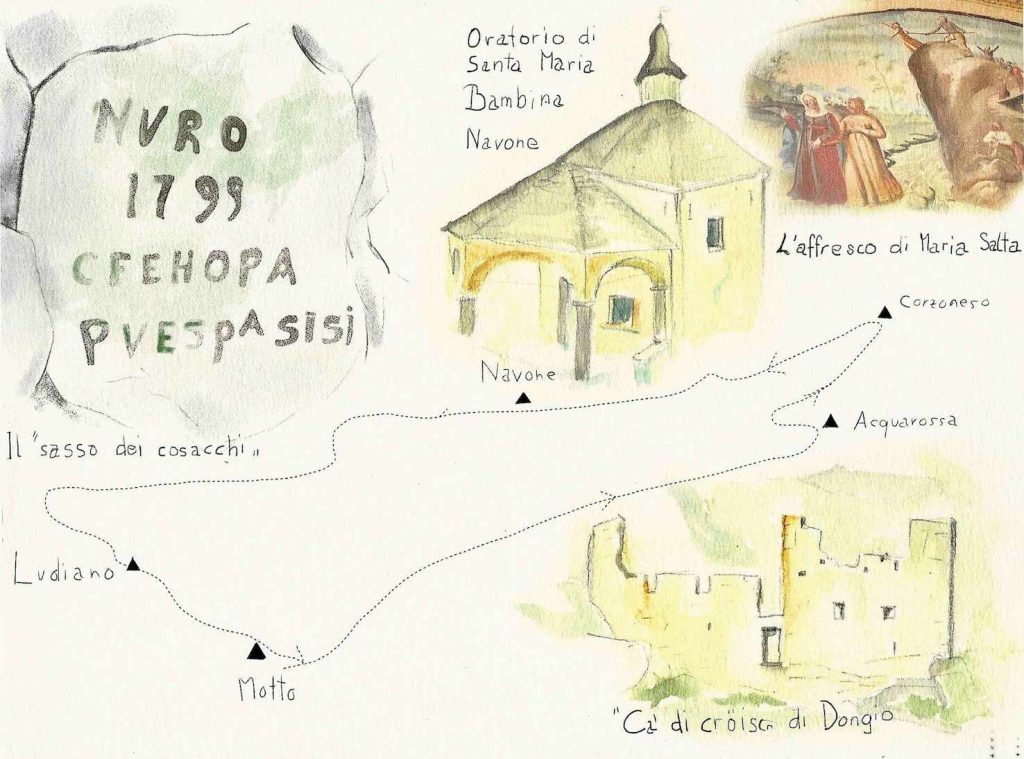 NVRO
1799
CFEHOPA
PVESPASISI
Il "sasso dei cosacchi"
Oratorio di
Santa Maria
Bambina
Navone
L'affresco di Maria Salta
Corzoneso
Navone
Acquarossa
Ludiano
Motto
"Ca' di cröisc di Dongio